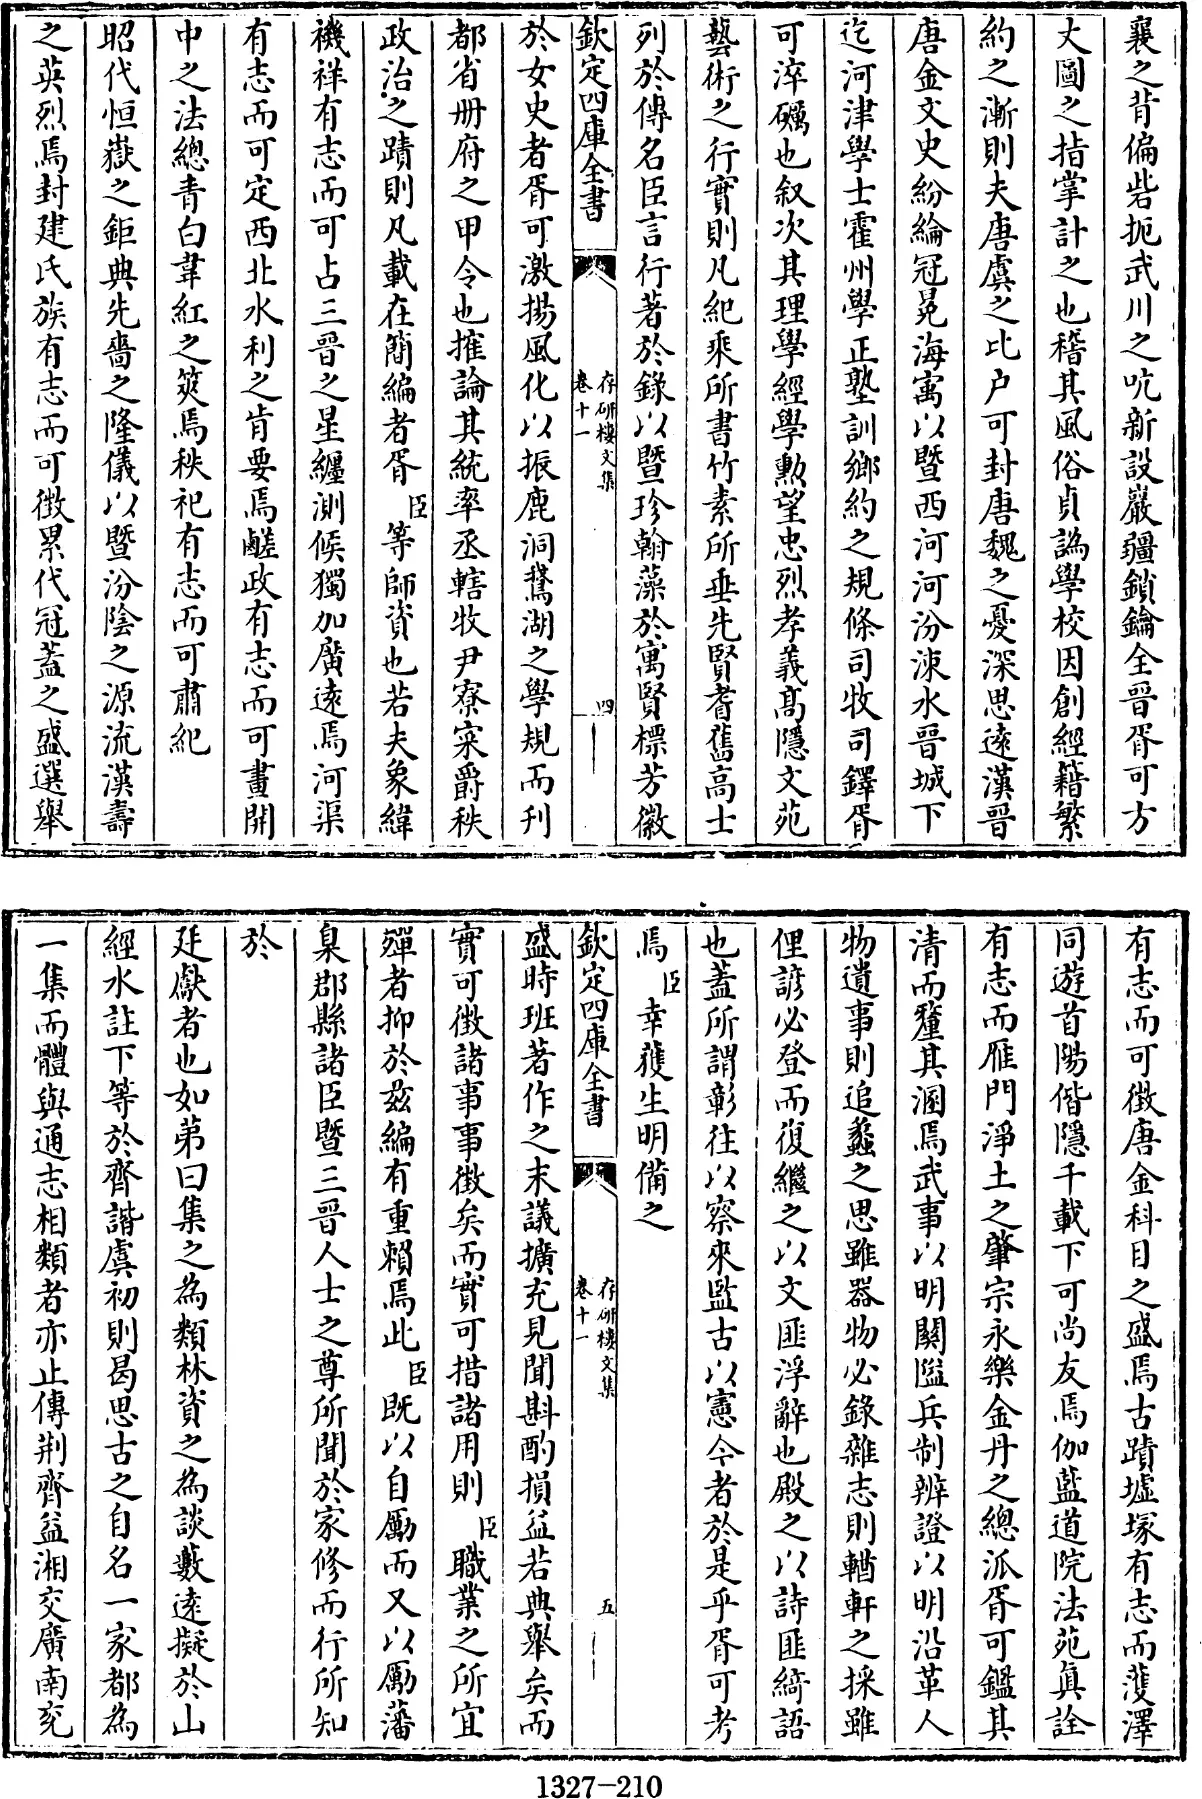 襄之背偏砦扼武川之吭新設巖疆鎖鑰全晉胥可方
丈圖之指掌計之也稽其風俗貞譌學校因創經籍繁
約之漸則夫唐虞之比户可封唐魏之憂深思遠漢晉
唐金文史紛綸冠冕海寓以暨西河河汾涑水晉城下
迄河津學士霍州學正塾訓鄉約之規條司牧司鐸胥
可淬礪也叙次其理學經學勲望忠烈孝義髙隱文苑
藝術之行實則凡紀乘所書竹素所垂先賢耆舊高士
列於傳名臣言行著於錄以暨珍翰藻於寓賢標芳徽
欽定四庫全書
存研樓文集
卷十一
四
於女史者胥可激揚風化以振鹿洞鵞湖之學規而刋
都省冊府之甲令也搉論其統率丞轄牧尹寮寀爵秩
政治之蹟則凡載在簡編者胥臣等師資也若夫象緯
禨祥有志而可占三晉之星纏測候獨加廣遠焉河渠
有志而可定西北水利之肯要焉鹺政有志而可畫開
中之法總青白韋紅之筴焉秩祀有志而可肅紀
昭代恒嶽之鉅典先嗇之隆儀以暨汾陰之源流漢壽
之英烈焉封建氏族有志而可徴累代冠蓋之盛選舉
有志而可徴唐金科目之盛焉古蹟墟塚有志而濩澤
同遊首陽偕隱千載下可尚友焉伽藍道院法苑眞詮
有志而雁門淨土之肇宗永樂金丹之總派胥可鑑其
清而釐其溷焉武事以明關隘兵制辨證以明沿革人
物遺事則追蠡之思雖器物必錄雜志則輶軒之採雖
俚諺必登而復繼之以文匪浮辭也殿之以詩匪綺語
也蓋所謂彰往以察來監古以憲今者於是乎胥可考
焉臣幸獲生明備之
欽定四庫全書
存研樓文集
卷十一
五
盛時班著作之末議擴充見聞斟酌損益若典舉矣而
實可徴諸事事徴矣而實可措諸用則臣職業之所宜
殫者抑於兹編有重賴焉此臣既以自勵而又以勵藩
臬郡縣諸臣暨三晉人士之尊所聞於家修而行所知
於
廷獻者也如第曰集之為類林資之為談藪遠擬於山
經水註下等於齊諧虞初則曷思古之自名一家都為
一集而體與通志相類者亦止傳荆齊益湘交廣南兖
1327-210